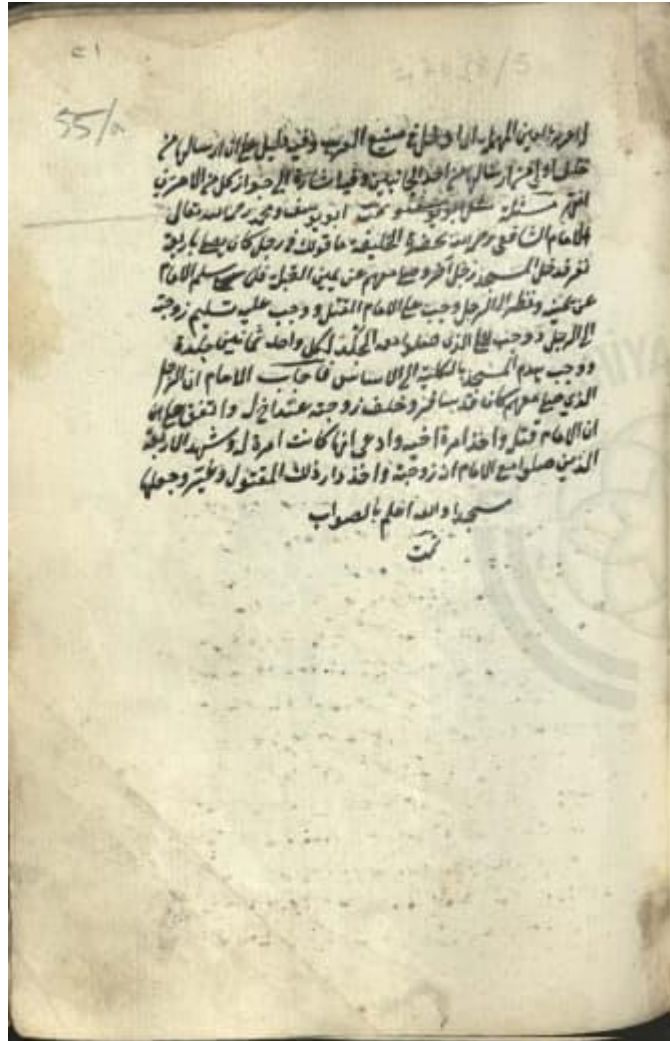 ٢١
55/a
خلفه او افتى ارسالها من احد الجانبين وفيه اشارة الى جواز كل من الامرين
انتهى مسئلة سئل ابو يوسف ومحمد رحمهما الله تعالى
الامام الشافعي رحمه الله بحضرة الخليفة ما قولك في رجل كان يصلى باربعة
نفر فدخل المسجد رجل آخر وصلى معهم عن يمين القبلة فلما سلم الامام
عن يمينه ونظر الى الرجل وجب على الامام القتل ووجب عليه تسليم زوجته
الى الرجل ووجب على الذى صلوا معه الجلد لكل واحد ثمانين جلدة
ووجب هدم المسجد بالكلية الى الاساس فاجاب الامام ان الرجل
الذى صلى معهم كان قد سافر وخلف زوجته عند اخ له واتفق
ان الامام قتل واخذ امرة اخيه وادعى انها كانت امرة له وشهد الاربعة
الذين صلوا مع الامام انه زوجته واخذ دار ذلك المقتول وغيّر وجعلها
مسجدا والله اعلم بالصواب
تمت